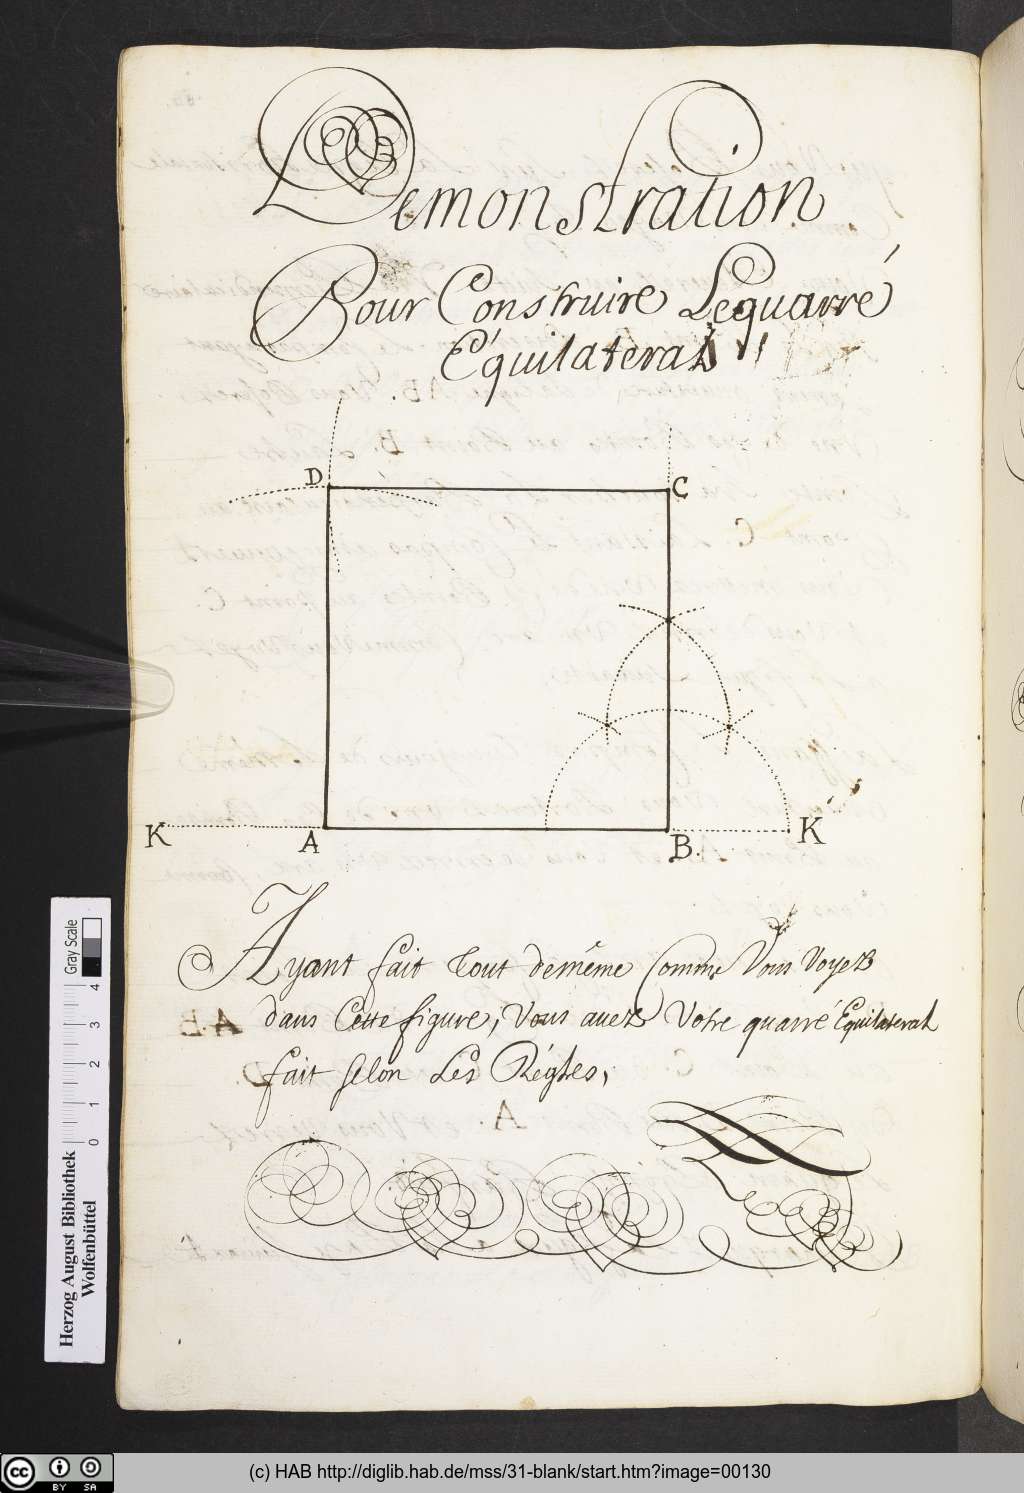 Demonstration
Pour Construire Lequarré
Équilateral
D
C
K
A
B.
K
Ayant fait tout demême Comme Vous Voyez
dans Cette figure, Vous auez Votre quarré Équilateral
fait selon Les Régles,
Herzog August Bibliothek
Wolfenbüttel
0 1 2 3 4
Gray Scale
cc BY SA
(c) HAB http://diglib.hab.de/mss/31-blank/start.htm?image=00130